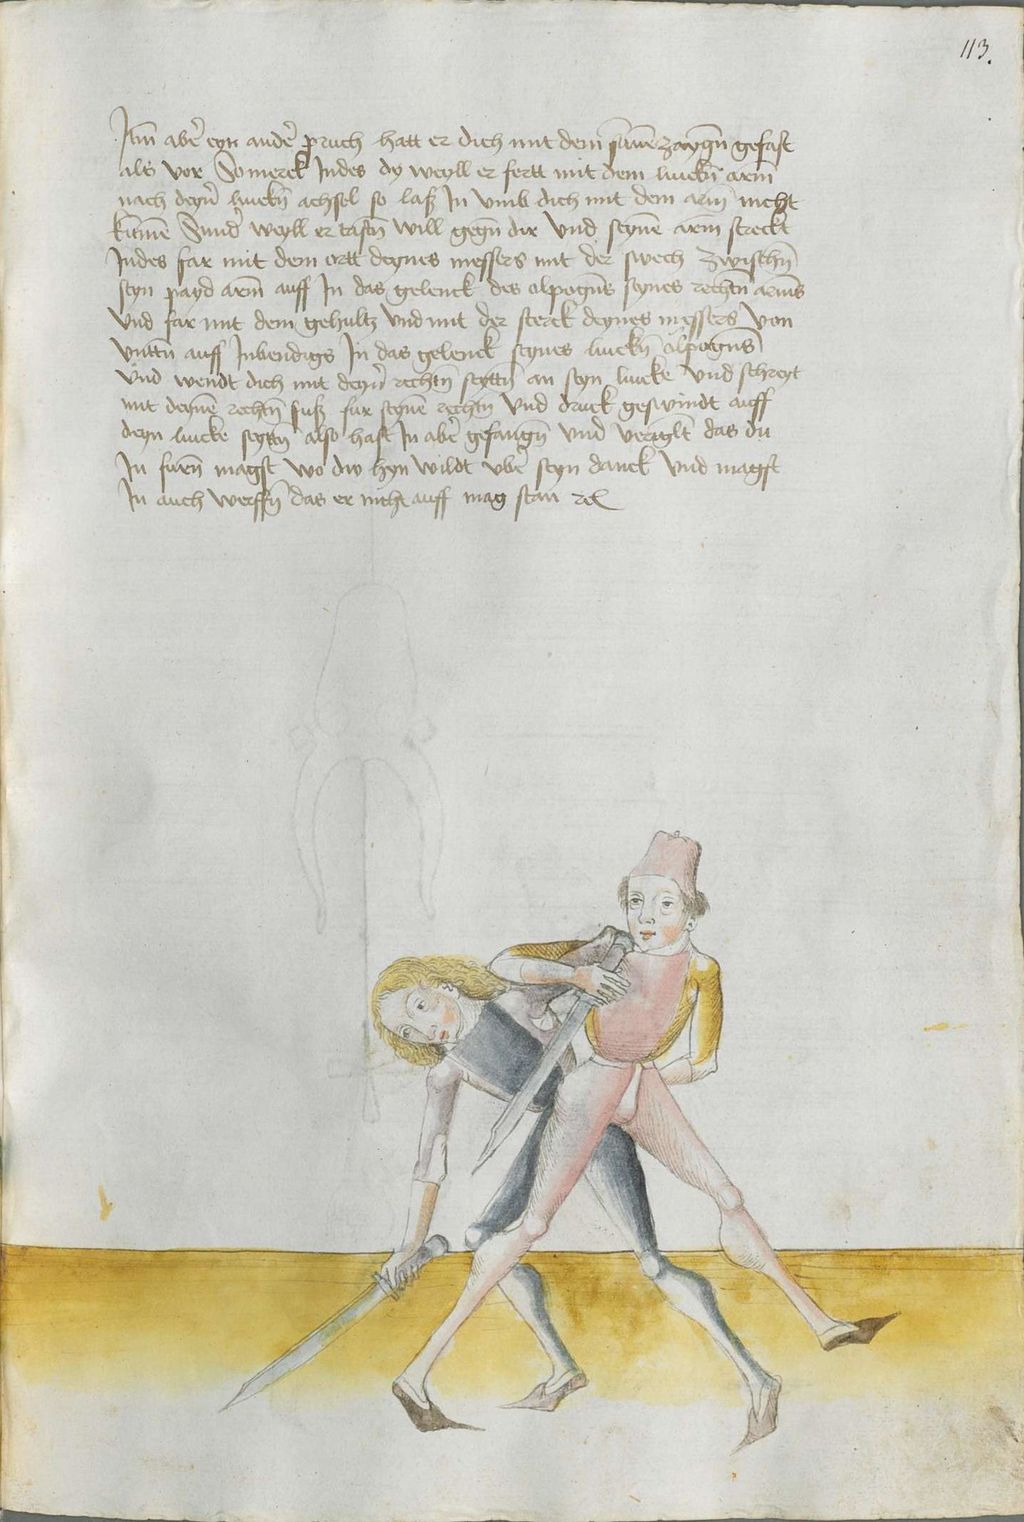 113.
Im̄ aber̄ eyn ander̄ pruch hatt er dich mit dem zaygn̄ gefast
als vor So merck Indes dy weyll er fertt mit dem linckn̄ arm̄
nach deyn̄ linckn̄ achsel so laß In vmb dich mit dem arm̄ nicht
kūmē Sund̄ weyll er tastn̄ will gegn̄ dir Vnd seynē arm̄ streckt
Indes far mit dem ortt deynes messers mit der swech zwischn̄
seyn payd arm̄ auff In das gelenck des elpogn̄s seynes rechtn̄ arm̄s
Vnd far mit dem gehultz Vnd mit der sterck deynes messers von
vnttn̄ auff Inbendigs In das gelenck seynes linckn̄ elpogn̄s
Vnd wendt dich mit deyn̄ rechtn̄ seyttn̄ an seyn lincke Vnd schreyt
mit deynē rechtn̄ fuß fur seynē rechtn̄ Vnd druck geswindt auff
deyn lincke seyttn̄ also hast In aber̄ gefangn̄ Vnd veriglt̄ das du
In furn̄ magst wo dw hyn wildt vber̄ seyn danck Vnd magst
In auch werffn̄ das er nicht auff mag stan